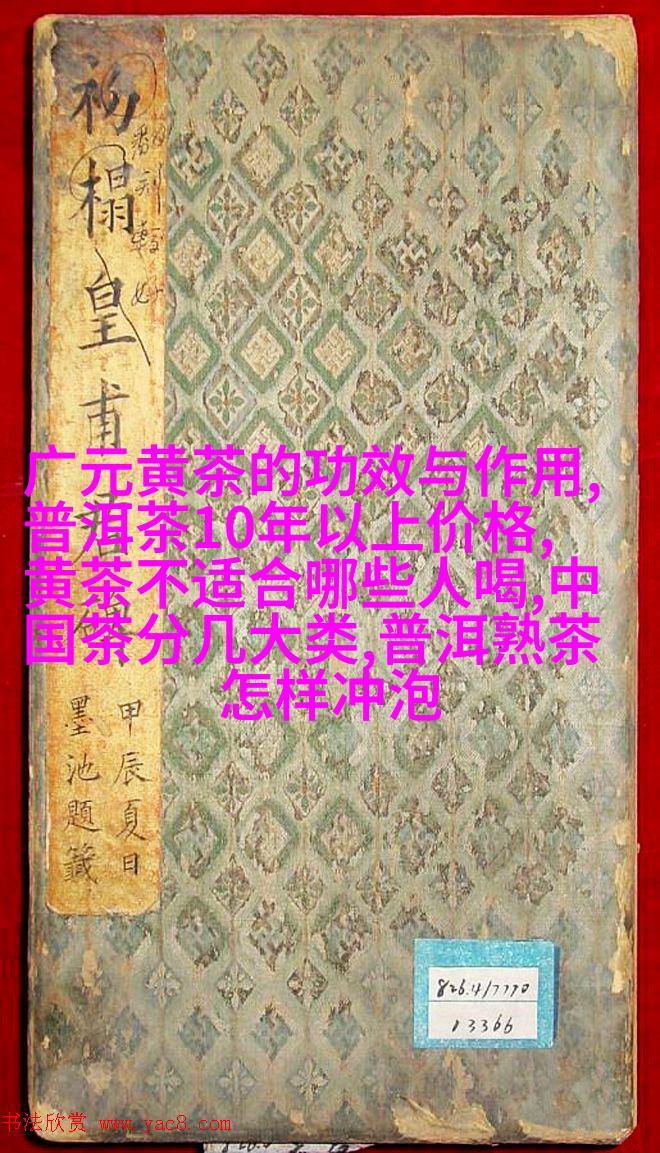 初榻皇甫君碑
翻刻較好
甲辰夏日
墨池題籤
广元黄茶的功效与作用,
普洱茶10年以上价格,
黄茶不适合哪些人喝,中
国茶分几大类,普洱熟茶
怎样冲泡
826.4/7770
13366
书法欣赏 www.yac8.com